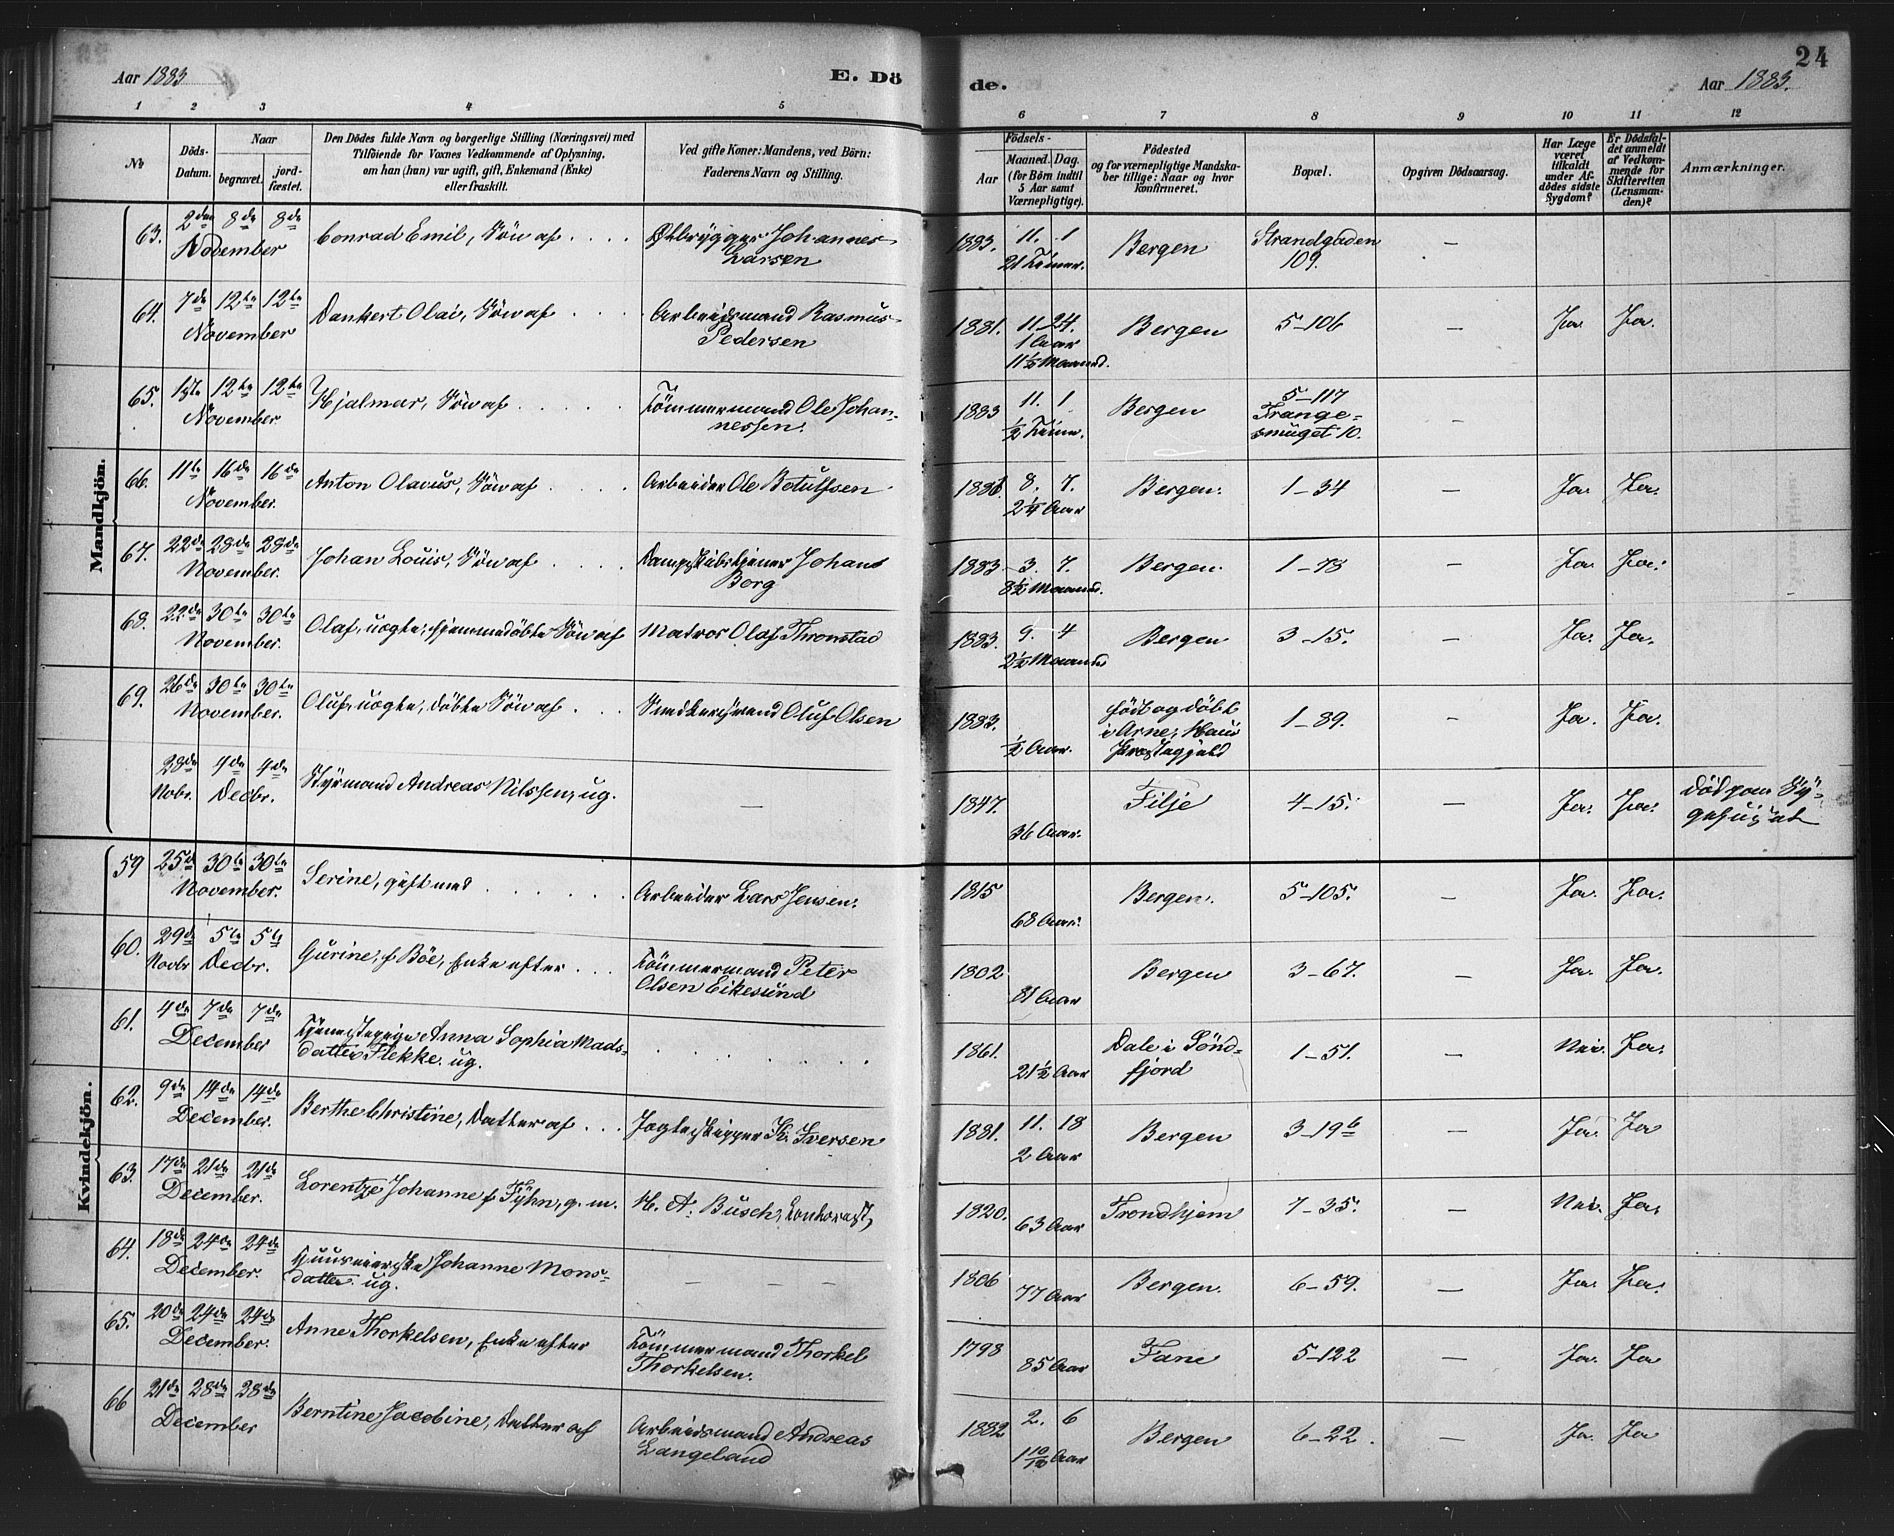 24
Aar 1883
E. Dö
de.
Aar 1883.
1 2 3 4 5 6 7 8 9 10 11 12
No
Döds-Datum.
Naar
begravet.
jord-fæstet.
Den Dödes fulde Navn og borgerlige Stilling (Næringsvei) med
Tilföiende for Voxnes Vedkommende af Oplysning,
om han (hun) var ugift, gift, Enkemand (Enke)
eller fraskilt.
Ved gifte Koner: Mandens, ved Börn:
Faderens Navn og Stilling.
Födsels-
Aar
Maaned. Dag.
(for Börn indtil
5 Aar samt
Værnepligtige).
Födested
og for værnepligtige Mandska-
ber tillige: Naar og hvor
konfirmeret.
Bopæl.
Opgiven Dödsaarsag.
Har Læge
været
tilkaldt
under Af-
dödes sidste
Sygdom?
Er Dödsfal-
det anmeldt
af Vedkom-
mende for
Skifteretten
(Lensman-
den)?
Anmærkninger.
Mandkjön.
63. 2den 8de 8de November Conrad Emil, Sön af . . . . Ølbrygger Johannes Larsen 1883. 11. 1 21 Timer. Bergen Strandgaden 109. —
64. 7de 12te 12te November Dankert Olai, Sön af . . . . Arbeidsmand Rasmus Pedersen 1881. 11. 24. 1 Aar 11½ Maaned. Bergen 5-106 — Ja. Ja.
65. 1ste 12te 12te November Hjalmar, Sön af . . . . . Tömmermand Ole Johan-nessen. 1883 11. 1. ½ Time. Bergen 5-117 Trange-smuget 10. —
66. 11te 16de 16de November. Anton Olavus, Sön af . . . . Arbeider Ole Botulfsen 1881 8. 7. 2¼ Aar Bergen. 1-34 — Ja. Ja.
67. 22de 28de 28de November. Johan Louis, Sön af . . . . Johans Borg 1883 3. 7. 8½ Maaned. Bergen. 1-73 — Ja. Ja.
68. 22de 30te 30te November. Olaf, uægte, hjemmedöbte Sön af Matros Olaf Thronstad 1883. 9. 4 2½ Maaned Bergen 3-15. — Ja. Ja.
69. 26de 30te 30te November. Oluf, uægte, döbte Sön af . . . Snedkersvend Oluf Olsen 1883. ½ Aar. födt og döbt i Arne, Haus Prestegjeld 1-89. — Ja. Ja.
28de Nobr. 4de 4de Decbr. Styrmand Andreas Nilssen, ug. — 1847. 36 Aar. Filje 4-15. — Ja. Ja. Död paa Sy-gehuset
Kvindekjön.
59 25de 30te 30te November. Serine, gift med . . . . . Arbeider Lars Jensen. 1815 68 Aar. Bergen. 5-105. — Ja. Ja.
60. 29de 5te 5te Novbr Decbr. Gurine, f Böe, Enke efter . . . Tömmermand Peter Olsen Eikesund 1802 81 Aar Bergen 3-67. — Ja. Ja.
61. 4de 7de 7de December Tjenestepige Anna Sophia Mads-datter Flekke. ug. . . . . . 1861. 21½ Aar Dale i Sönd-fjord 1-51. — Nei. Ja.
62. 9de 14de 14de December. Berthe Christine, Datter af . . . Jagteskipper Iversen 1881. 11. 18 2 Aar Bergen 3-19b — Ja. Ja
63. 17de 21de 21de December. Lorentze Johanne f Fÿhn, g. m. H. A. Busch, Kontorist, 1820. 63 Aar Trondhjem 7-35. — Nei. Ja.
64. 18de 24de 24de December. Huuseierske Johanne Mons-datter. ug. — — — 1806 77 Aar Bergen. 6-59. — Ja. Ja.
65. 20de 24de 24de December. Anne Thorkelsen, Enke efter Tömmermand Thorkel Thorkelsen. 1798 85 Aar Fane 5-122 — Ja. Ja
66 21de 28de 28de December Berntine Jacobine, Datter af Arbeidsmand Andreas Langeland 1882 2. 6 1 10/12 Aar Bergen 6-22. — Ja. Ja